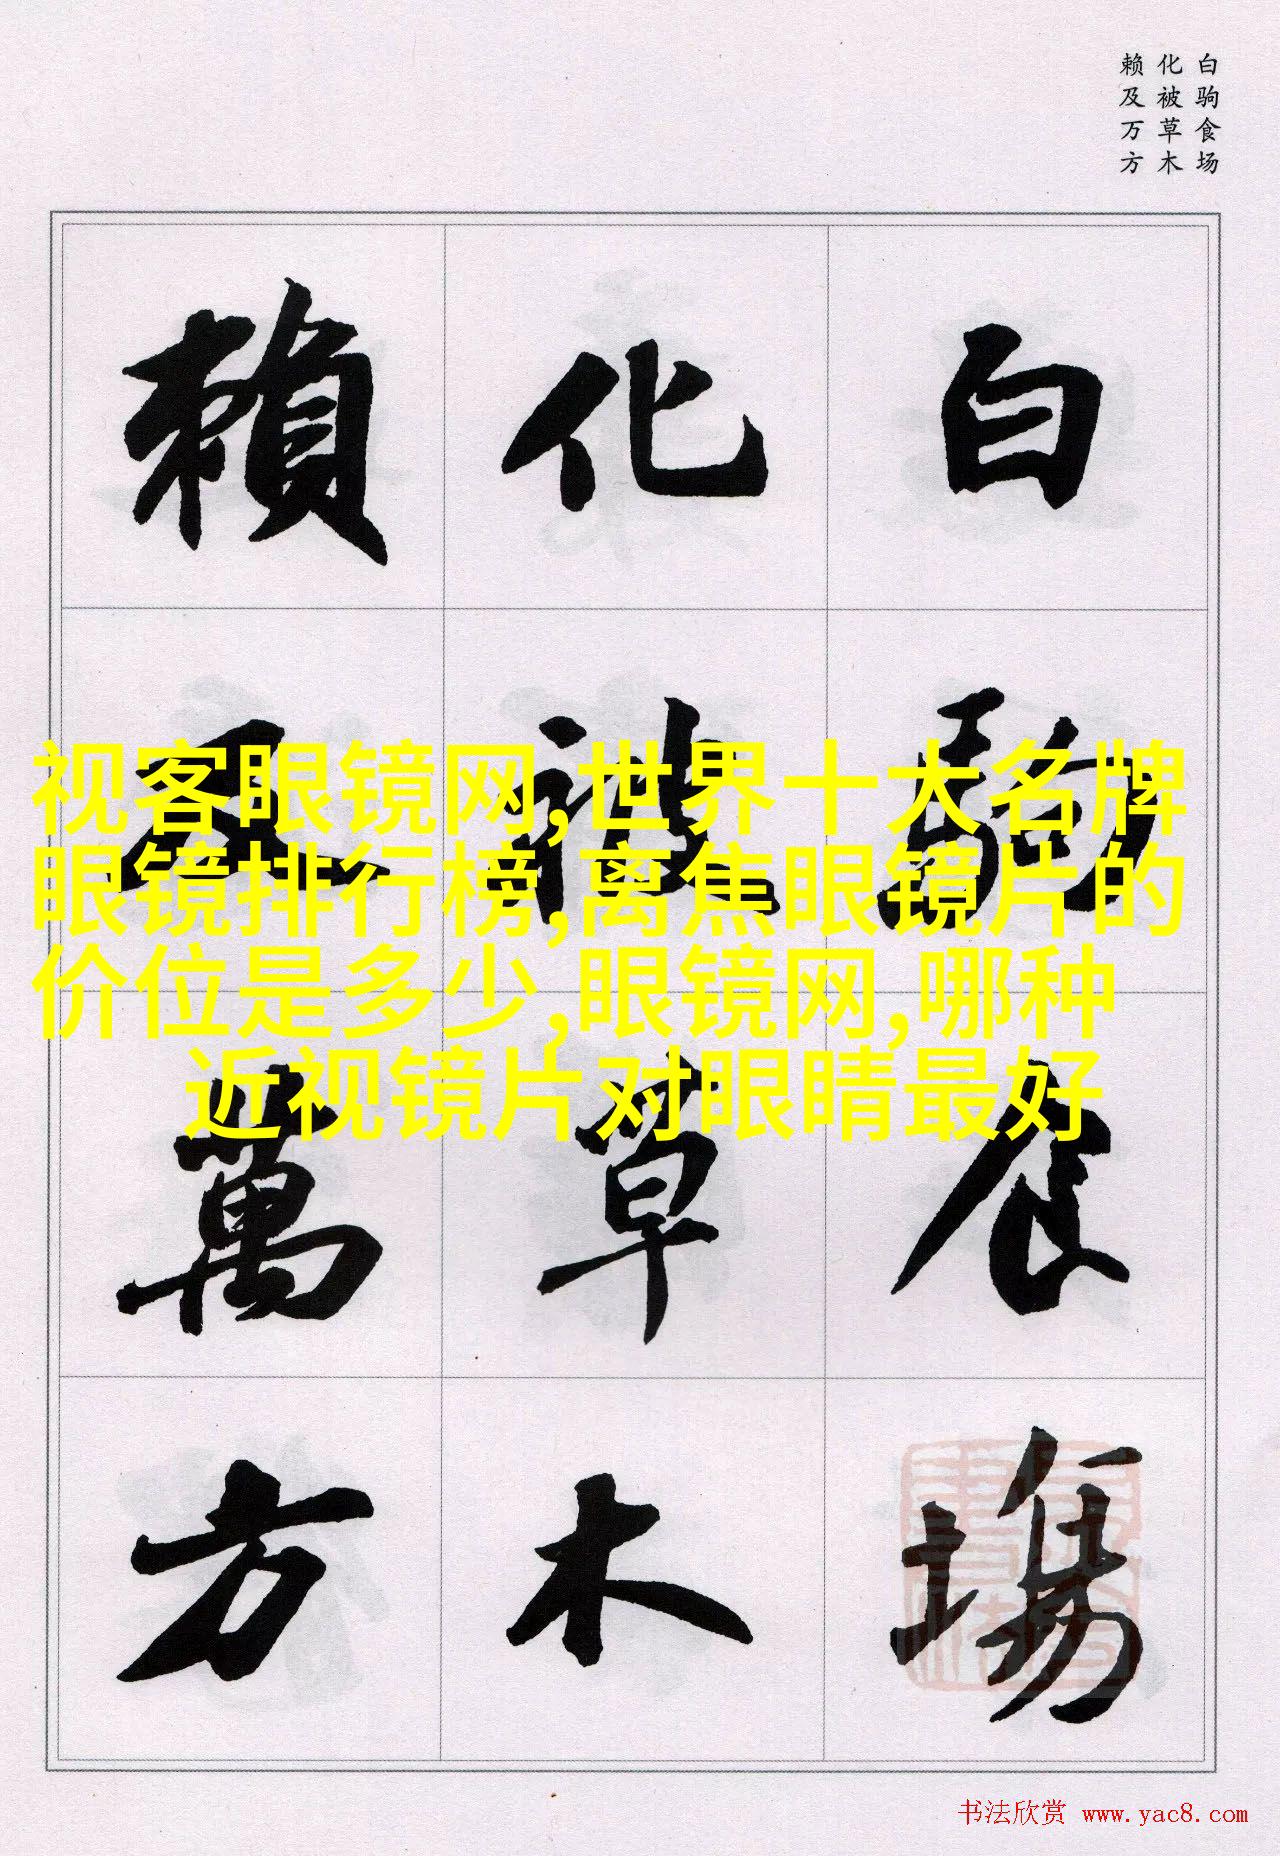 白驹食场
化被草木
赖及万方
白駒食場
化被草木
賴及萬方
视客眼镜网,世界十大名牌
眼镜排行榜,离焦眼镜片的
价位是多少,眼镜网,哪种
近视镜片对眼睛最好
书法欣赏 www.yac8.com